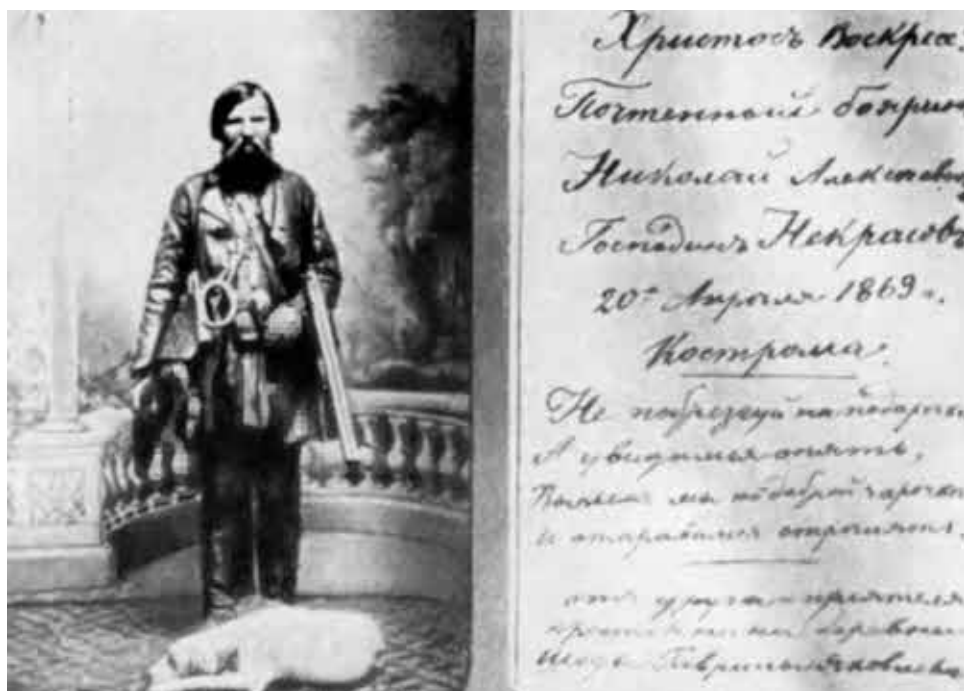 Христосъ Воскресе,
Почтенный бояринъ
Николай Алексеевич
Господинъ Некрасовъ
20го Апреля 1869 г.
Кострома
Не побрезгуй на подарке
А увидимся опять,
Выпьем мы по доброй чарочке
и отправимся стрелять.
отъ друга и приятеля
крестьянина деревни
Шоды Гаврилы Яковлева